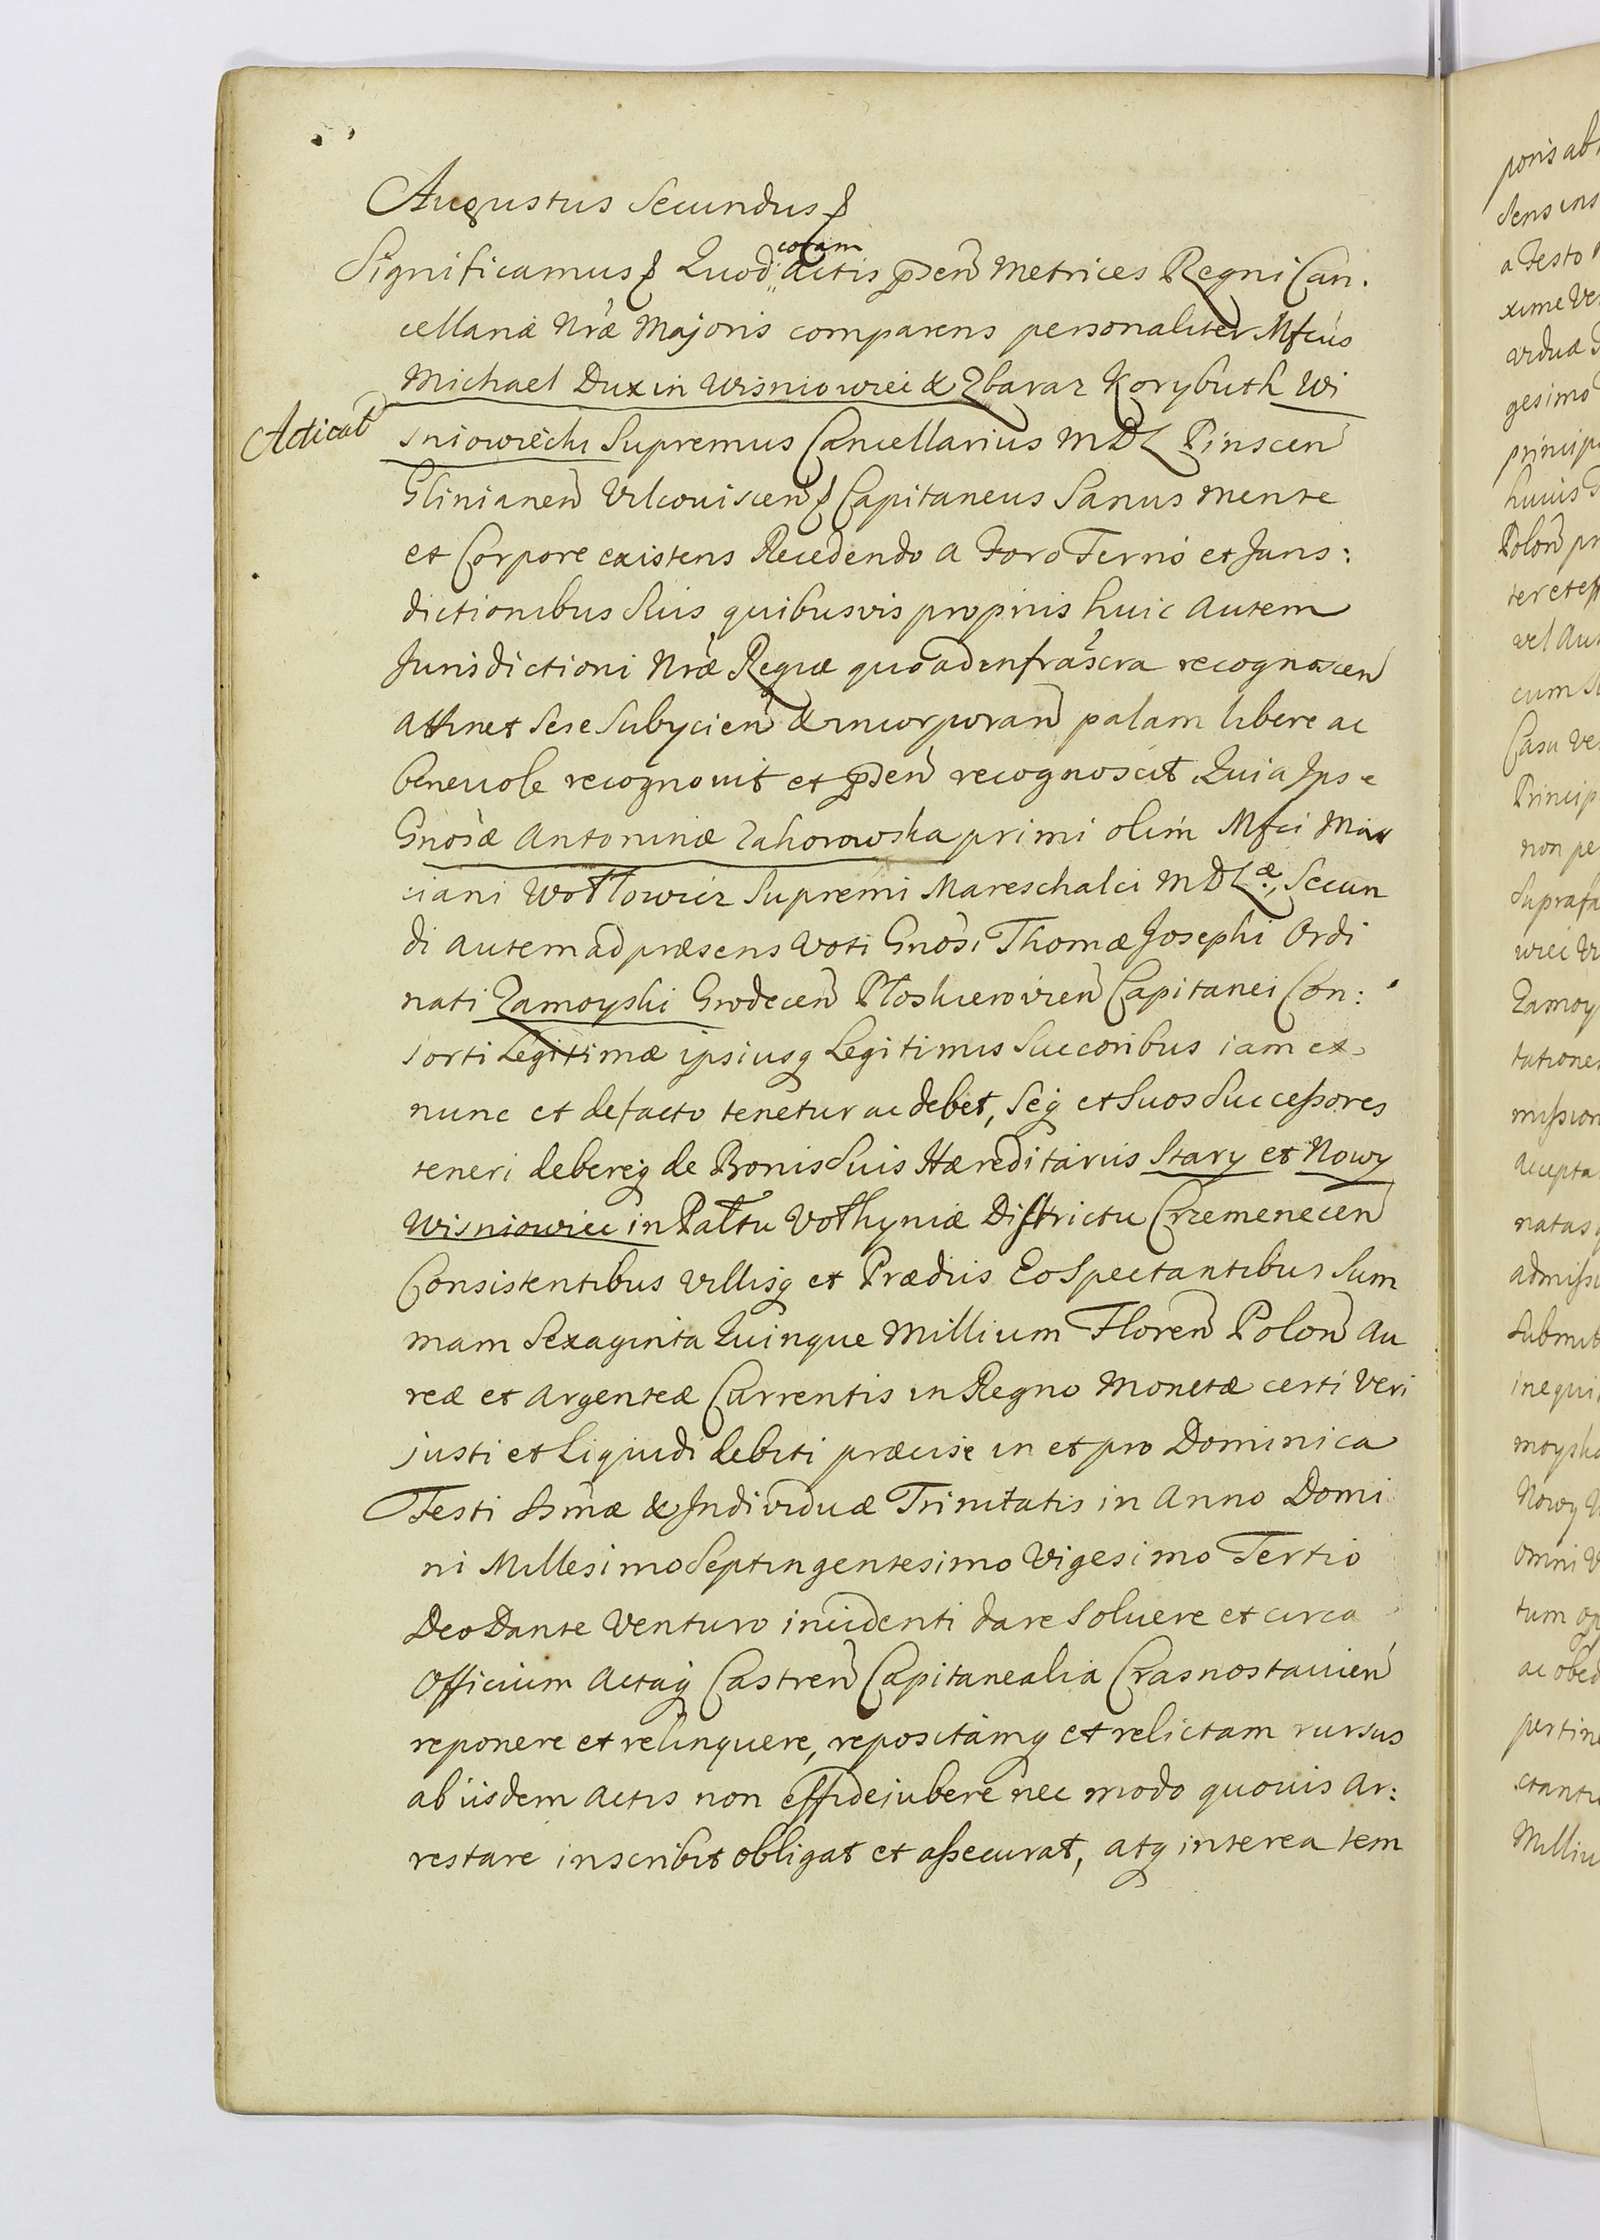 Augustus Secundus &
Significamus & Quod coram actis pñsen Metrices Regni Can.
cellariæ Nræ Majoris comparens personaliter Mfcus
Michael Dux in Wisniowiec & Zbaraz Korybuth Wi
Acticat
sniowiecki Supremus Cancellarius MDL Pinscen
Glinianen Vilcoviscen & Capitaneus Sanus mente
et Corpore existens Recedendo a Foro Terris et Juris:
dictionibus Suis quibusvis propriis huic autem
Jurisdictioni Nræ Regiæ quoad infrascra recognoscen
attinet sese subyicien & incorporan palam libere ac
benevole recognovit et pñsen recognoscit. Quia Ipse
Gnosæ Antoninæ Zahorowska primi olim Mfci Mar
ciani Wołłowicz Supremi Mareschalci MDLæ, Secun
di autem ad præsens Voti Gnosi Thomæ Josephi Ordi
nati Zamoyski Grodecen Płoskierovien Capitanei Con:
sorti Legitimæ ipsiusq Legitimis Succoribus iam ex
nunc et de facto tenetur ac debet, Seq et Suos Successores
teneri debereq de Bonis Suis Hæreditariis Stary et Nowy
Wisniowiec in Pałtu Vołhyniæ Districtu Crzemenecen
Consistentibus Villisq et Prædiis Eo Spectantibus Sum
mam Sexaginta Quinque Millium Floren Polon Au
reæ et Argenteæ Currentis in Regno Monetæ certi veri
justi et Liquidi debiti præcise in et pro Dominica
Festi Ssmæ & Individuæ Trinitatis in Anno Domi
ni Millesimo Septingentesimo Vigesimo Tertio
Deo Dante Venturo incidenti dare Solvere et circa
Officium Actaq Castren Capitanealia Crasnostavien
reponere et relinquere, repositamq et relictam rursus
ab iisdem Actis non effidejubere nec modo quovis Ar:
restare inscribit obligat et assecurat, atq interea tem